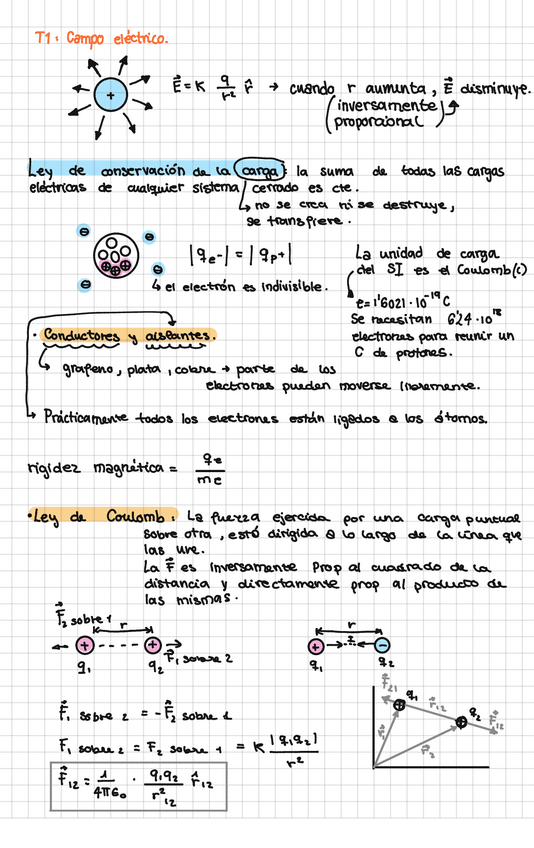 T1: Campo eléctrico.
+
E⃗ = K q/r² r̂ → cuando r aumenta, E⃗ disminuye.
(inversamente
proporcional)
Ley de conservación de la carga: la suma de todas las cargas
eléctricas de cualquier sistema cerrado es cte.
↳ no se crea ni se destruye,
se transfiere.
|qe-| = |qp+|
↳ el electrón es indivisible.
La unidad de carga
del SI es el Coulomb(C)
e=1'6021·10⁻¹⁹C
Se necesitan 6'24·10¹⁸
electrones para reunir un
C de protones.
· Conductores y aislantes.
↳ grafeno, plata, cobre → parte de los
electrones pueden moverse libremente.
↳ Prácticamente todos los electrones están ligados a los átomos.
rigidez magnética = qe/me
· Ley de Coulomb: La fuerza ejercida por una carga puntual
sobre otra, está dirigida a lo largo de la línea que
las une.
La F⃗ es inversamente prop al cuadrado de la
distancia y directamente prop al producto de
las mismas.
F⃗2 sobre 1
r
+ +
q1 q2 F⃗1 sobre 2
r
+ −
q1 q2
F⃗1 sobre 2 = -F⃗2 sobre 1
F1 sobre 2 = F2 sobre 1 = K |q1q2|/r²
F⃗12 = 1/4πε0 · q1q2/r²12 r̂12
F⃗21 q1 r⃗12 q2 F⃗12
r⃗1 r⃗2